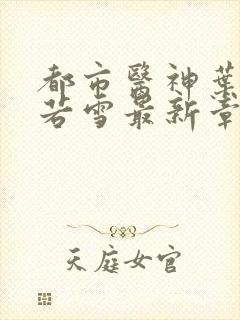 都市醫神葉
若雪最新章
天庭女官